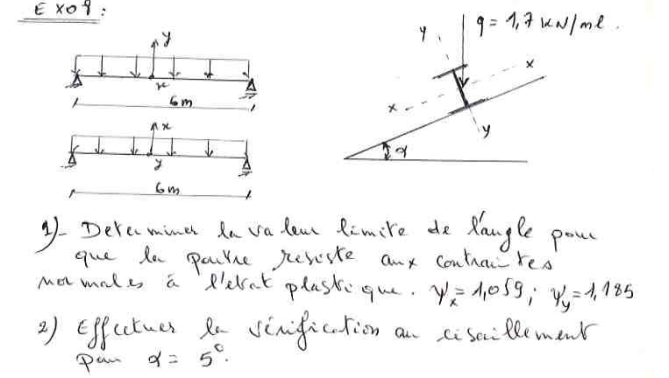 EX09:
q = 1,7 kN/ml.
y
y
x
x
6m
x
x
y
y
α
6m
1)- Determiner la valeur limite de l'angle pour
que la poutre resiste aux contraintes
normales à l'etat plastique. Ψx = 1,059; Ψy = 1,185
2) Effectuer la vérification au cisaillement
pour α = 5°.